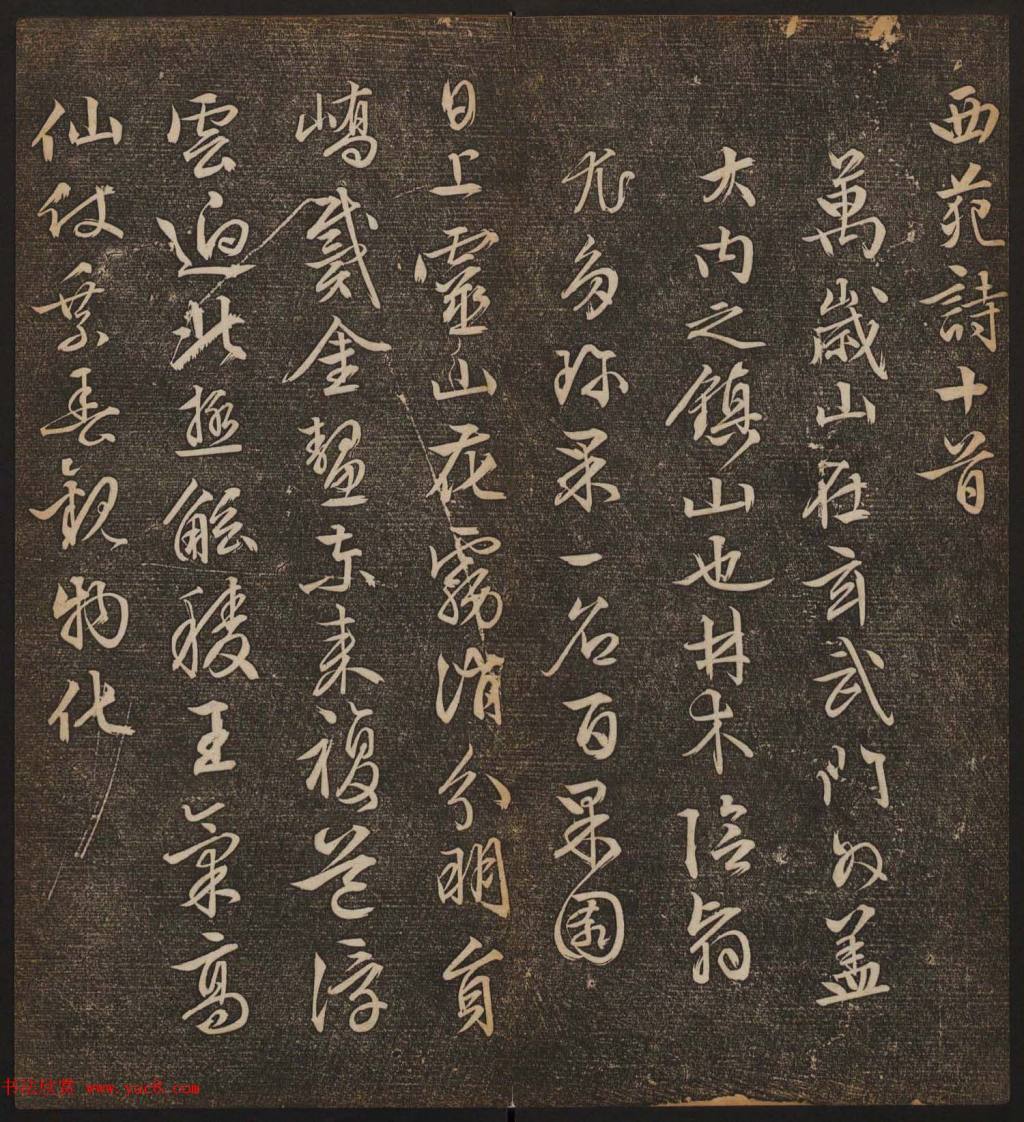 西苑詩十首
萬歲山在玄武門外蓋
大內之鎮山也林木陰翳
尤多珍果一名百果園
日上靈山花霧消分明員
嶠戴金鰲東來複道浮
雲迥北極觚稜王氣高
仙仗乘春觀物化
书法欣赏 www.yac8.com